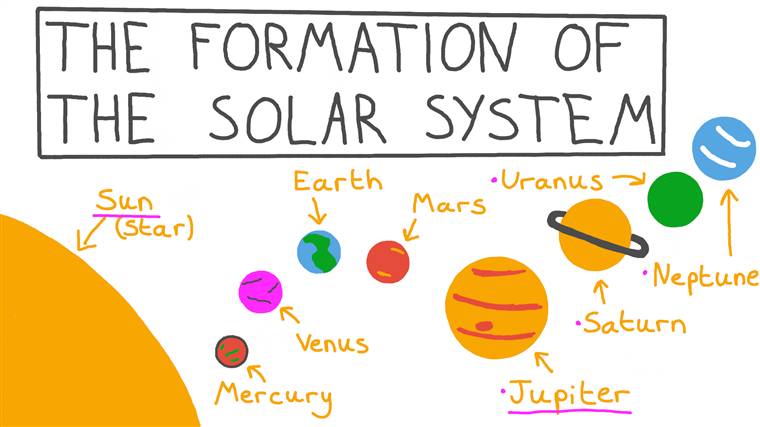 THE FORMATION OF
THE SOLAR SYSTEM
Sun
(star)
Earth
Mars
Uranus
Neptune
Saturn
Venus
Mercury
Jupiter